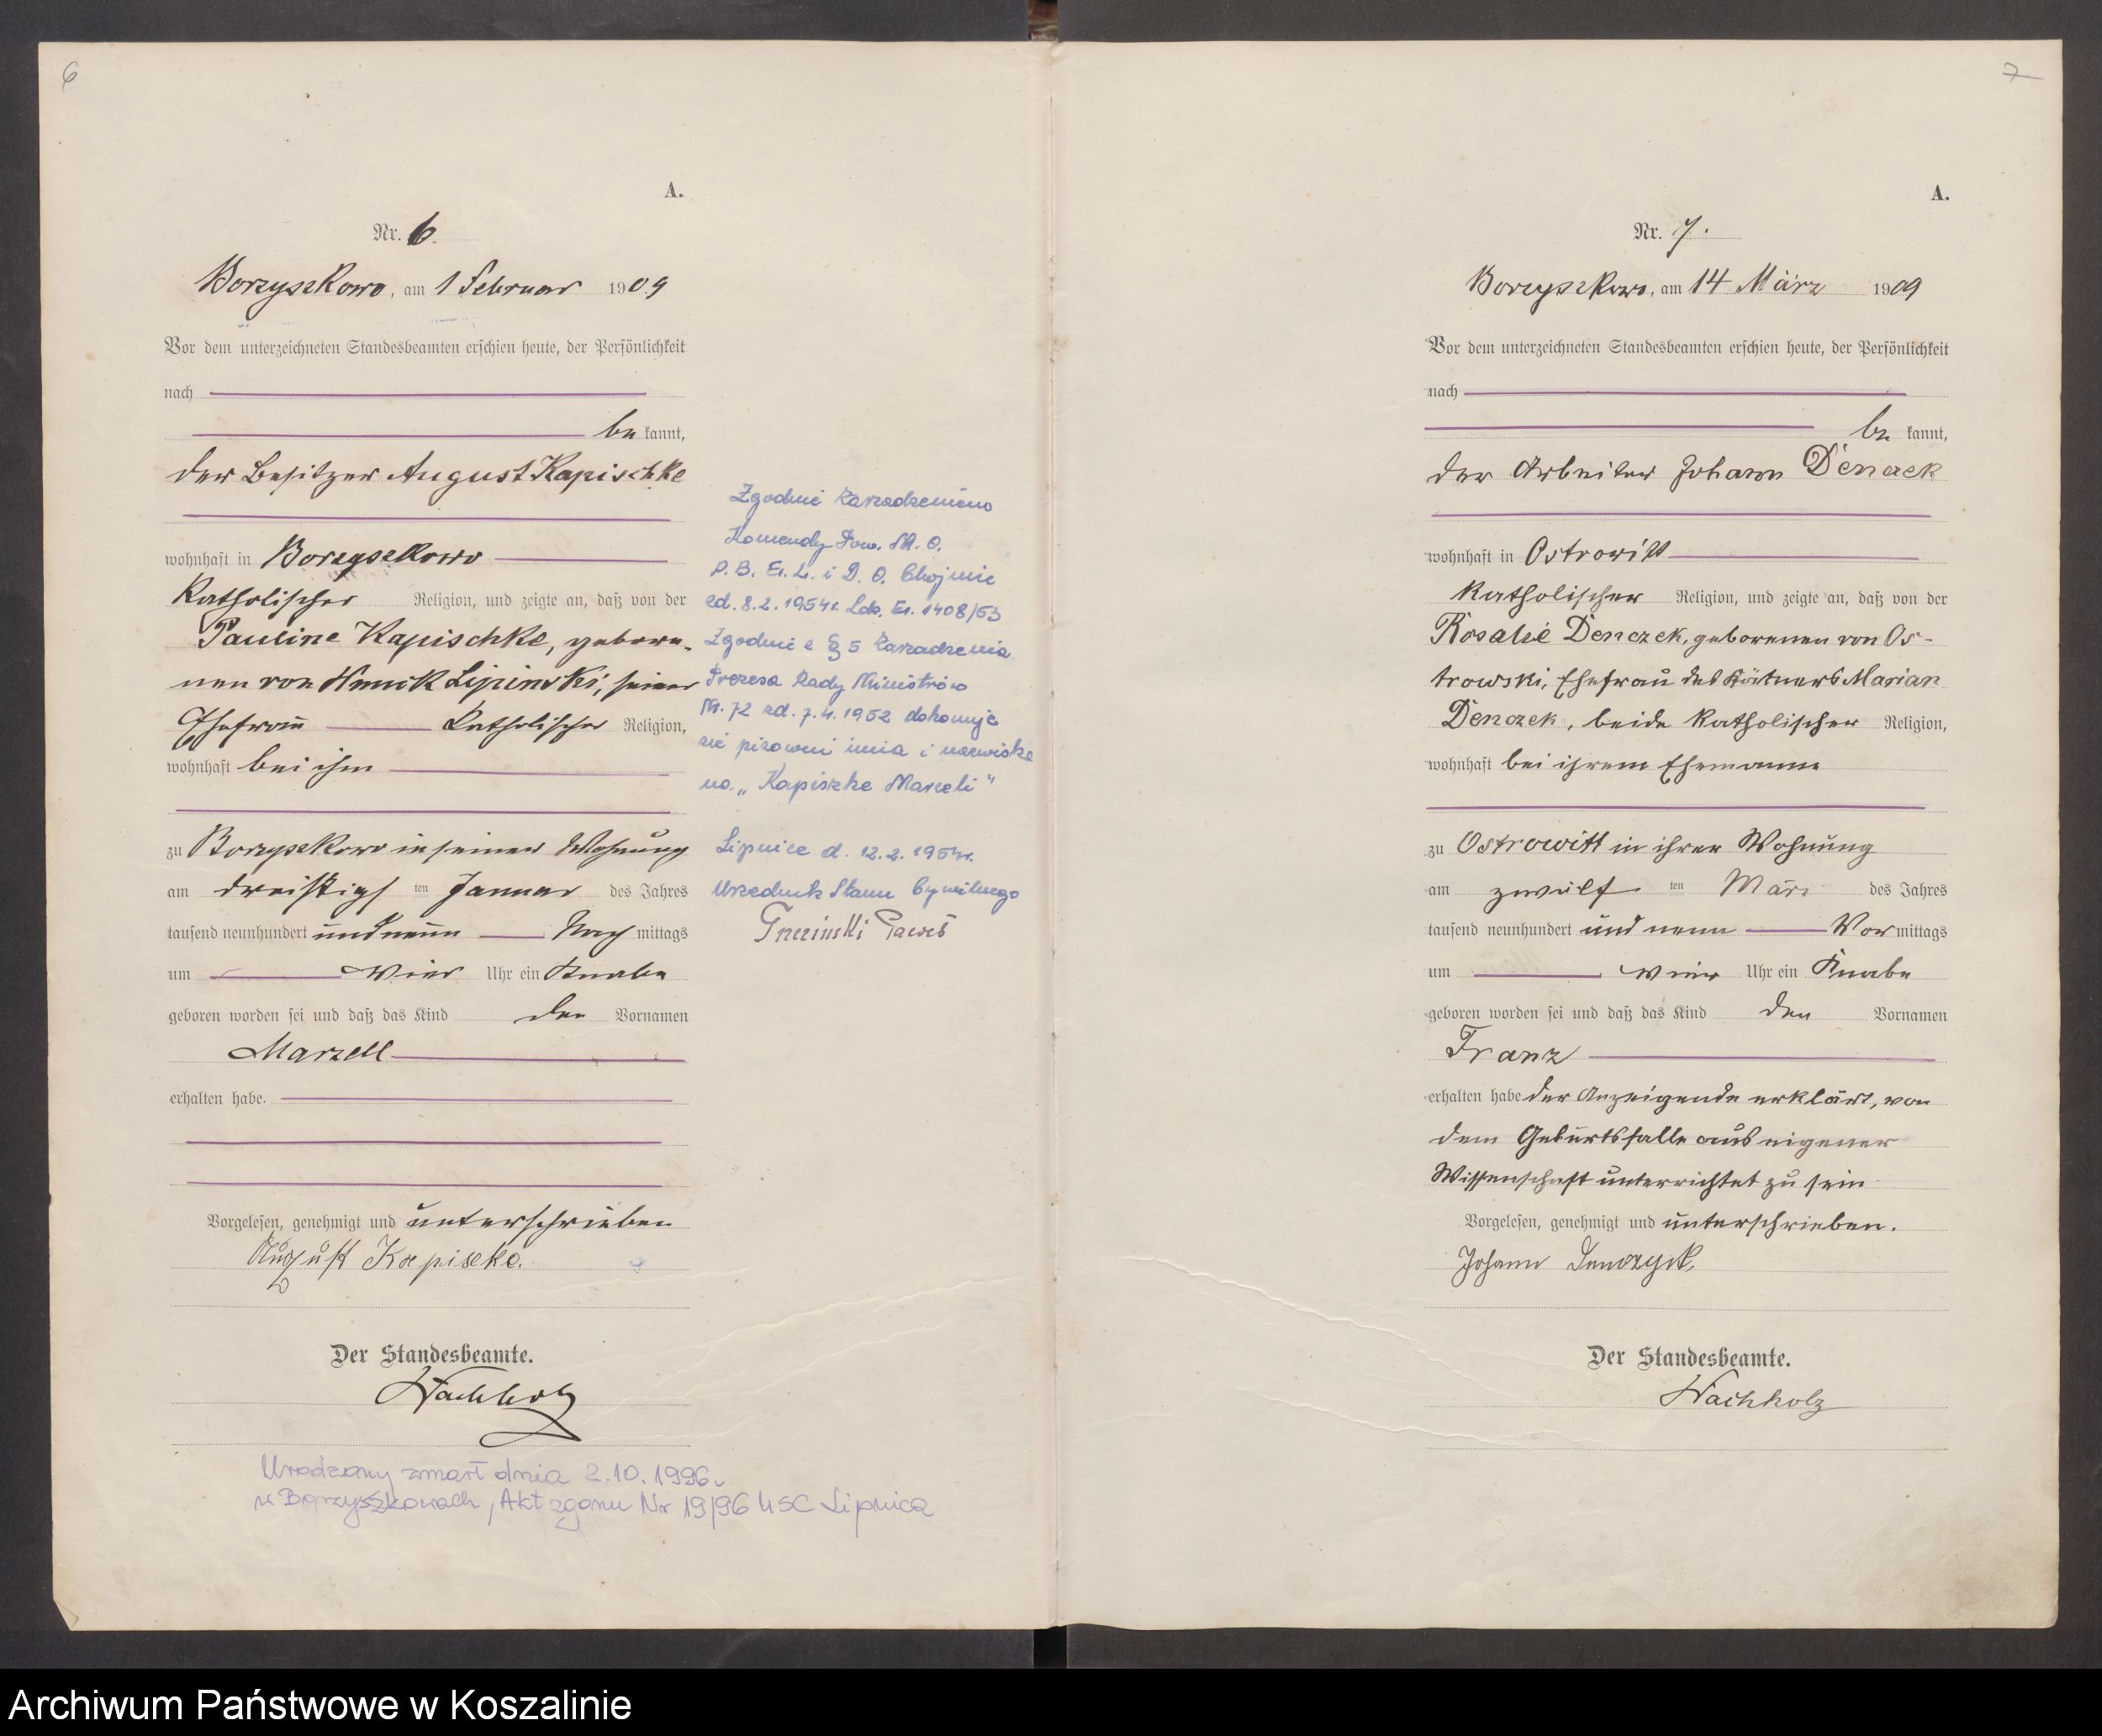 6
A.
Nr. 6.
Borzyszkowo, am 1 Februar 1909
Vor dem unterzeichneten Standesbeamten erschien heute, der Persönlichkeit
nach
be kannt,
der Besitzer August Kapischke
wohnhaft in Borzyszkowo
katholischer Religion, und zeigte an, daß von der
Pauline Kapischke, gebore-
nen von Lipinski, seiner
Ehefrau katholischer Religion,
wohnhaft bei ihm
zu Borzyszkowo in seiner Wohnung
am dreißigsten Januar des Jahres
tausend neunhundert und neun Nach mittags
um vier Uhr ein Knabe
geboren worden sei und daß das Kind den Vornamen
Marzell
erhalten habe.
Vorgelesen, genehmigt und unterschrieben
August Kapiszke.
Der Standesbeamte.
Wachholz
Zgodnie Zarządzeniem
Komendy Pow. M. O.
P. B. E. L. i D. O. Chojnice
zd. 8.2.1954r. Ldz. Er. 1408/53
Zgodnie z § 5 Zarządzenia
Prezesa Rady Ministrów
Nr. 72 zd. 7.4.1952 dokonuje
się pisowni imia i nazwiska
na „Kapiszke Marceli"
Lipnica d. 12.2.1954r.
Urzednik Stanu Cywilnego
Paweł
Urodzony zmarł dnia 2.10.1996r
w Borzyszkowach, Akt zgonu Nr 19/96 USC Lipnica
7
A.
Nr. 7.
Borzyszkowo, am 14 März 1909
Vor dem unterzeichneten Standesbeamten erschien heute, der Persönlichkeit
nach
be kannt,
der Arbeiter Johann Denczek
wohnhaft in Ostrowitt
katholischer Religion, und zeigte an, daß von der
Rosalie Denczek, geborenen von Os-
trowski, Ehefrau des Kätners Marian
Denczek, beide katholischer Religion,
wohnhaft bei ihrem Ehemanne
zu Ostrowitt in ihrer Wohnung
am zwölf ten März des Jahres
tausend neunhundert und neun Vor mittags
um vier Uhr ein Knabe
geboren worden sei und daß das Kind den Vornamen
Franz
erhalten habe der Anzeigende erklärt, von
dem Geburtsfalle aus eigener
Wissenschaft unterrichtet zu sein
Vorgelesen, genehmigt und unterschrieben.
Johann
Der Standesbeamte.
Wachholz
Archiwum Państwowe w Koszalinie